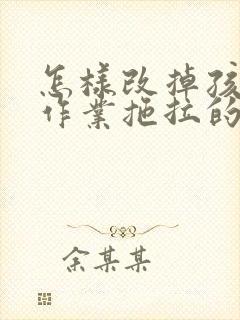 怎样改掉孩
作业拖拉的
余某某